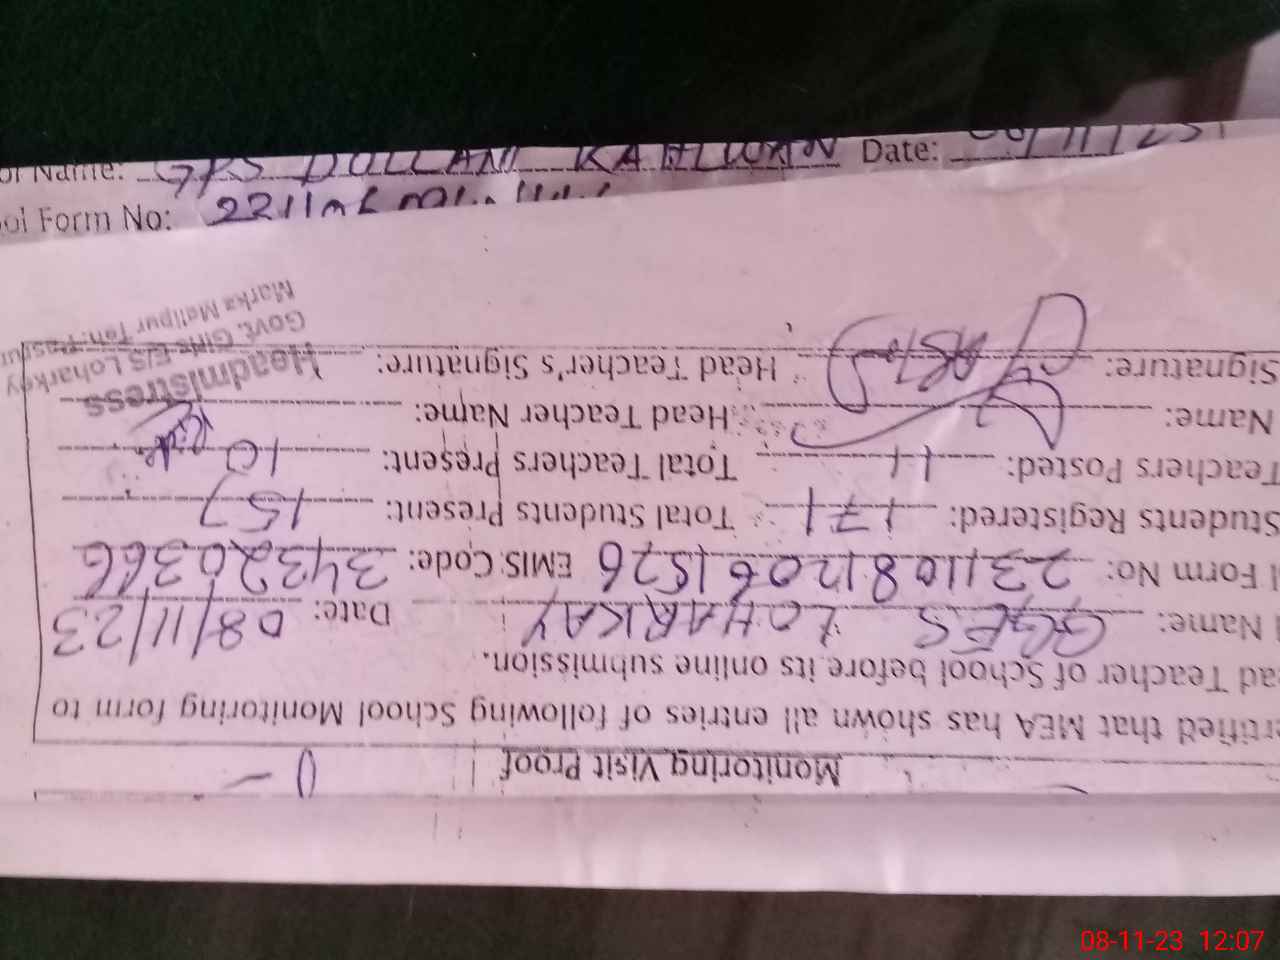 ol Name: GPS DULLAM KAHLWAN Date:
ol Form No:
Monitoring Visit Proof
ertified that MEA has shown all entries of following School Monitoring form to
ead Teacher of School before its online submission.
l Name: GGES LOHARKAY Date: 08/11/23
l Form No: 23110812061526 EMIS Code: 34320366
Students Registered: 171 Total Students Present: 157
Teachers Posted: 11 Total Teachers Present: 10
Name: Head Teacher Name:
Signature: Head Teacher's Signature:
Headmistress
Govt. Girls E/S Loharkey
Marka Malipur Teh: Pasrur
08-11-23 12:07